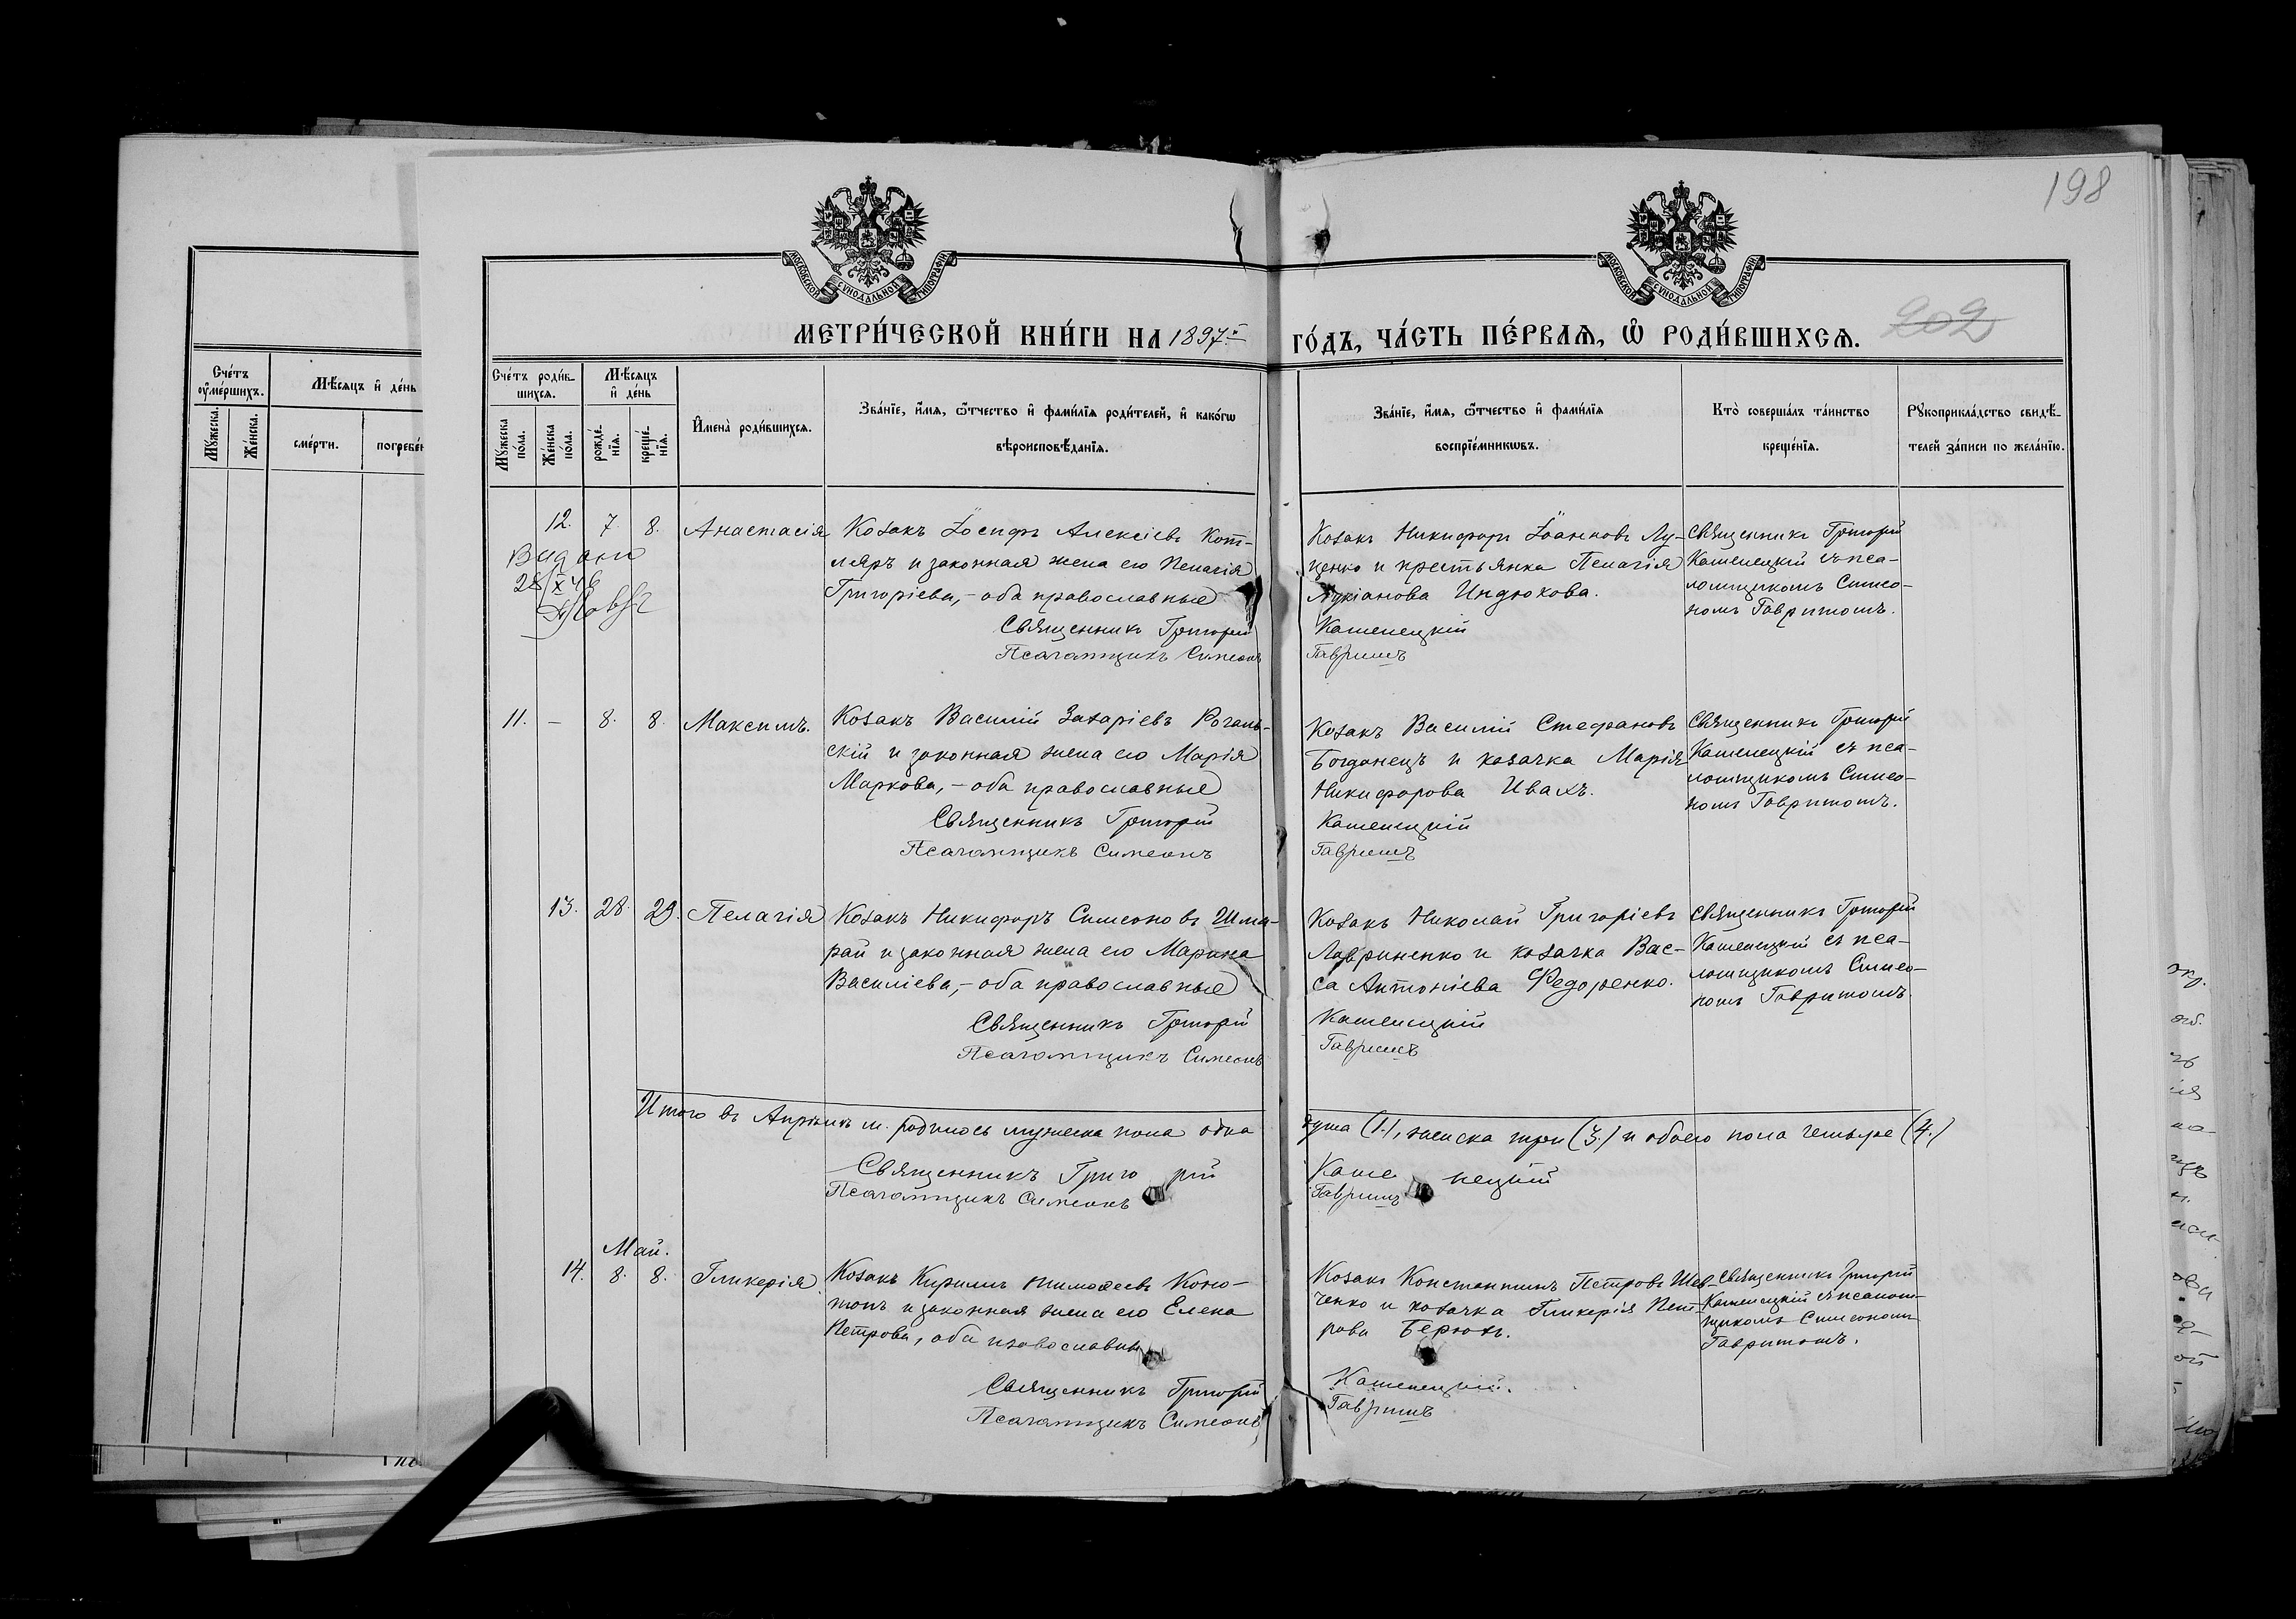 198
МОСКОВСКОЙ СУНОДАЛЬНОЙ ТИПОГРАФІИ
МОСКОВСКОЙ СУНОДАЛЬНОЙ ТИПОГРАФІИ
МЕТРИ́ЧЕСКОЙ КНИ́ГИ НА 1897й ГО́ДЪ, ЧА́СТЬ ПЕ́РВАЯ, Ѡ҆ РОДИ́ВШИХСЯ.
202
Сче́тъ оумéршихъ.
Мꙋ́жеска.
Же́нска.
Мѣ́сяцъ и҆ де́нь
сме́рти.
погребе́н
Сче́тъ роди́в-
шихся.
Мꙋ́жеска по́ла.
Же́нска по́ла.
Мѣ́сяцъ
и҆ де́нь
рожде́нїя.
креще́нїя.
И҆мена̀ роди́вшихся.
Зва́нїе, и҆́мя, ѻ҆́тчество и҆ фами́лїя роди́телей, и҆ како́гѡ
вѣроисповѣ́данїя.
Зва́нїе, и҆́мя, ѻ҆́тчество и҆ фами́лїя
воспрїе́мникѡвъ.
Кто̀ соверша́лъ та́инство
креще́нїя.
Рꙋкоприкла́дство свидѣ́-
телей за́писи по жела́нїю.
12. 7. 8. Анастасія
Видано
28/X 46
Козакъ Іосифъ Алексіевъ Кот-
ляръ и законная жена его Пелагія
Григоріева, – оба православные
Священникъ Григорій
Псаломщикъ Симеонъ
Козакъ Никифоръ Іоанновъ Лу-
ценко и крестьянка Пелагія
Лукіанова Индюкова.
Каменецкій
Гавришъ
Священникъ Григорій
Каменецкій съ пса-
ломщикомъ Симео-
номъ Гавришомъ.
11. – 8. 8. Максимъ.
Козакъ Василій Захаріевъ Рогань-
скій и законная жена его Марія
Маркова, – оба православные
Священникъ Григорій
Псаломщикъ Симеонъ
Козакъ Василій Стефановъ
Богданецъ и козачка Марія
Никифорова Ивахъ.
Каменецкій
Гавришъ
Священникъ Григорій
Каменецкій съ пса-
ломщикомъ Симео-
номъ Гавришомъ.
13. 28. 29. Пелагія
Козакъ Никифоръ Симеоновъ Шма-
рай и законная жена его Марина
Василіева, – оба православные
Священникъ Григорій
Псаломщикъ Симеонъ
Козакъ Николай Григоріевъ
Лавриненко и козачка Вас-
са Антоніева Федоренко.
Каменецкій
Гавришъ
Священникъ Григорій
Каменецкій съ пса-
ломщикомъ Симео-
номъ Гавришомъ.
Итого въ Апрѣлѣ м. родилось мужеска пола одна душа (1.), женска три (3.) и обоего пола четыре (4.)
Священникъ Григорій Каменецкій
Псаломщикъ Симеонъ Гавришъ
Май.
14. 8. 8. Гликерія.
Козакъ Кириллъ Тимоѳеевъ Коно-
топъ и законная жена его Елена
Петрова, оба православны
Священникъ Григорій
Псаломщикъ Симеонъ
Козакъ Константинъ Петровъ Шев-
ченко и козачка Гликерія Пет-
рова Берюхъ.
Каменецкій.
Гавришъ
Священникъ Григорій
Каменецкій съ псалом-
щикомъ Симеономъ
Гавришомъ.